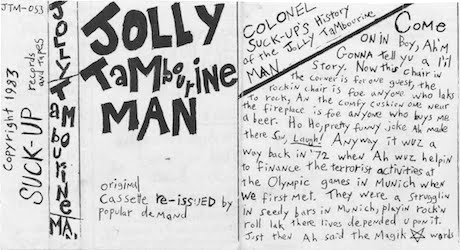 JTM-053
Copyright 1983
SUCK-UP
records
and tapes
JOLLY TAMbOURINE MA.
JOLLY
TAMbourine
MAN
original
Cassette re-issued by
popular demand
COLONEL
SUCK-UP'S History
of the Jolly Tambourine
MAN
Come
ON IN Boy, Ah'm
Gonna tell yu a li'l
Story. Now the chair in
the corner is for one guest, the
rockin chair is foe anyone who laks
to rock, An the comfy cushion one near
the fireplace is foe anyone who buys me
a beer. Ho Ho, pretty funny joke Ah make
there Son, Laugh! Anyway it wuz a
way back in '72 when Ah wuz helpin
to finance the terrorist activities at
the Olympic games in Munich when
we first met. They were a strugglin
in seedy bars in Munich, playin rock'n
roll lak there lives depended upon it.
Just then Ah said the Magik words